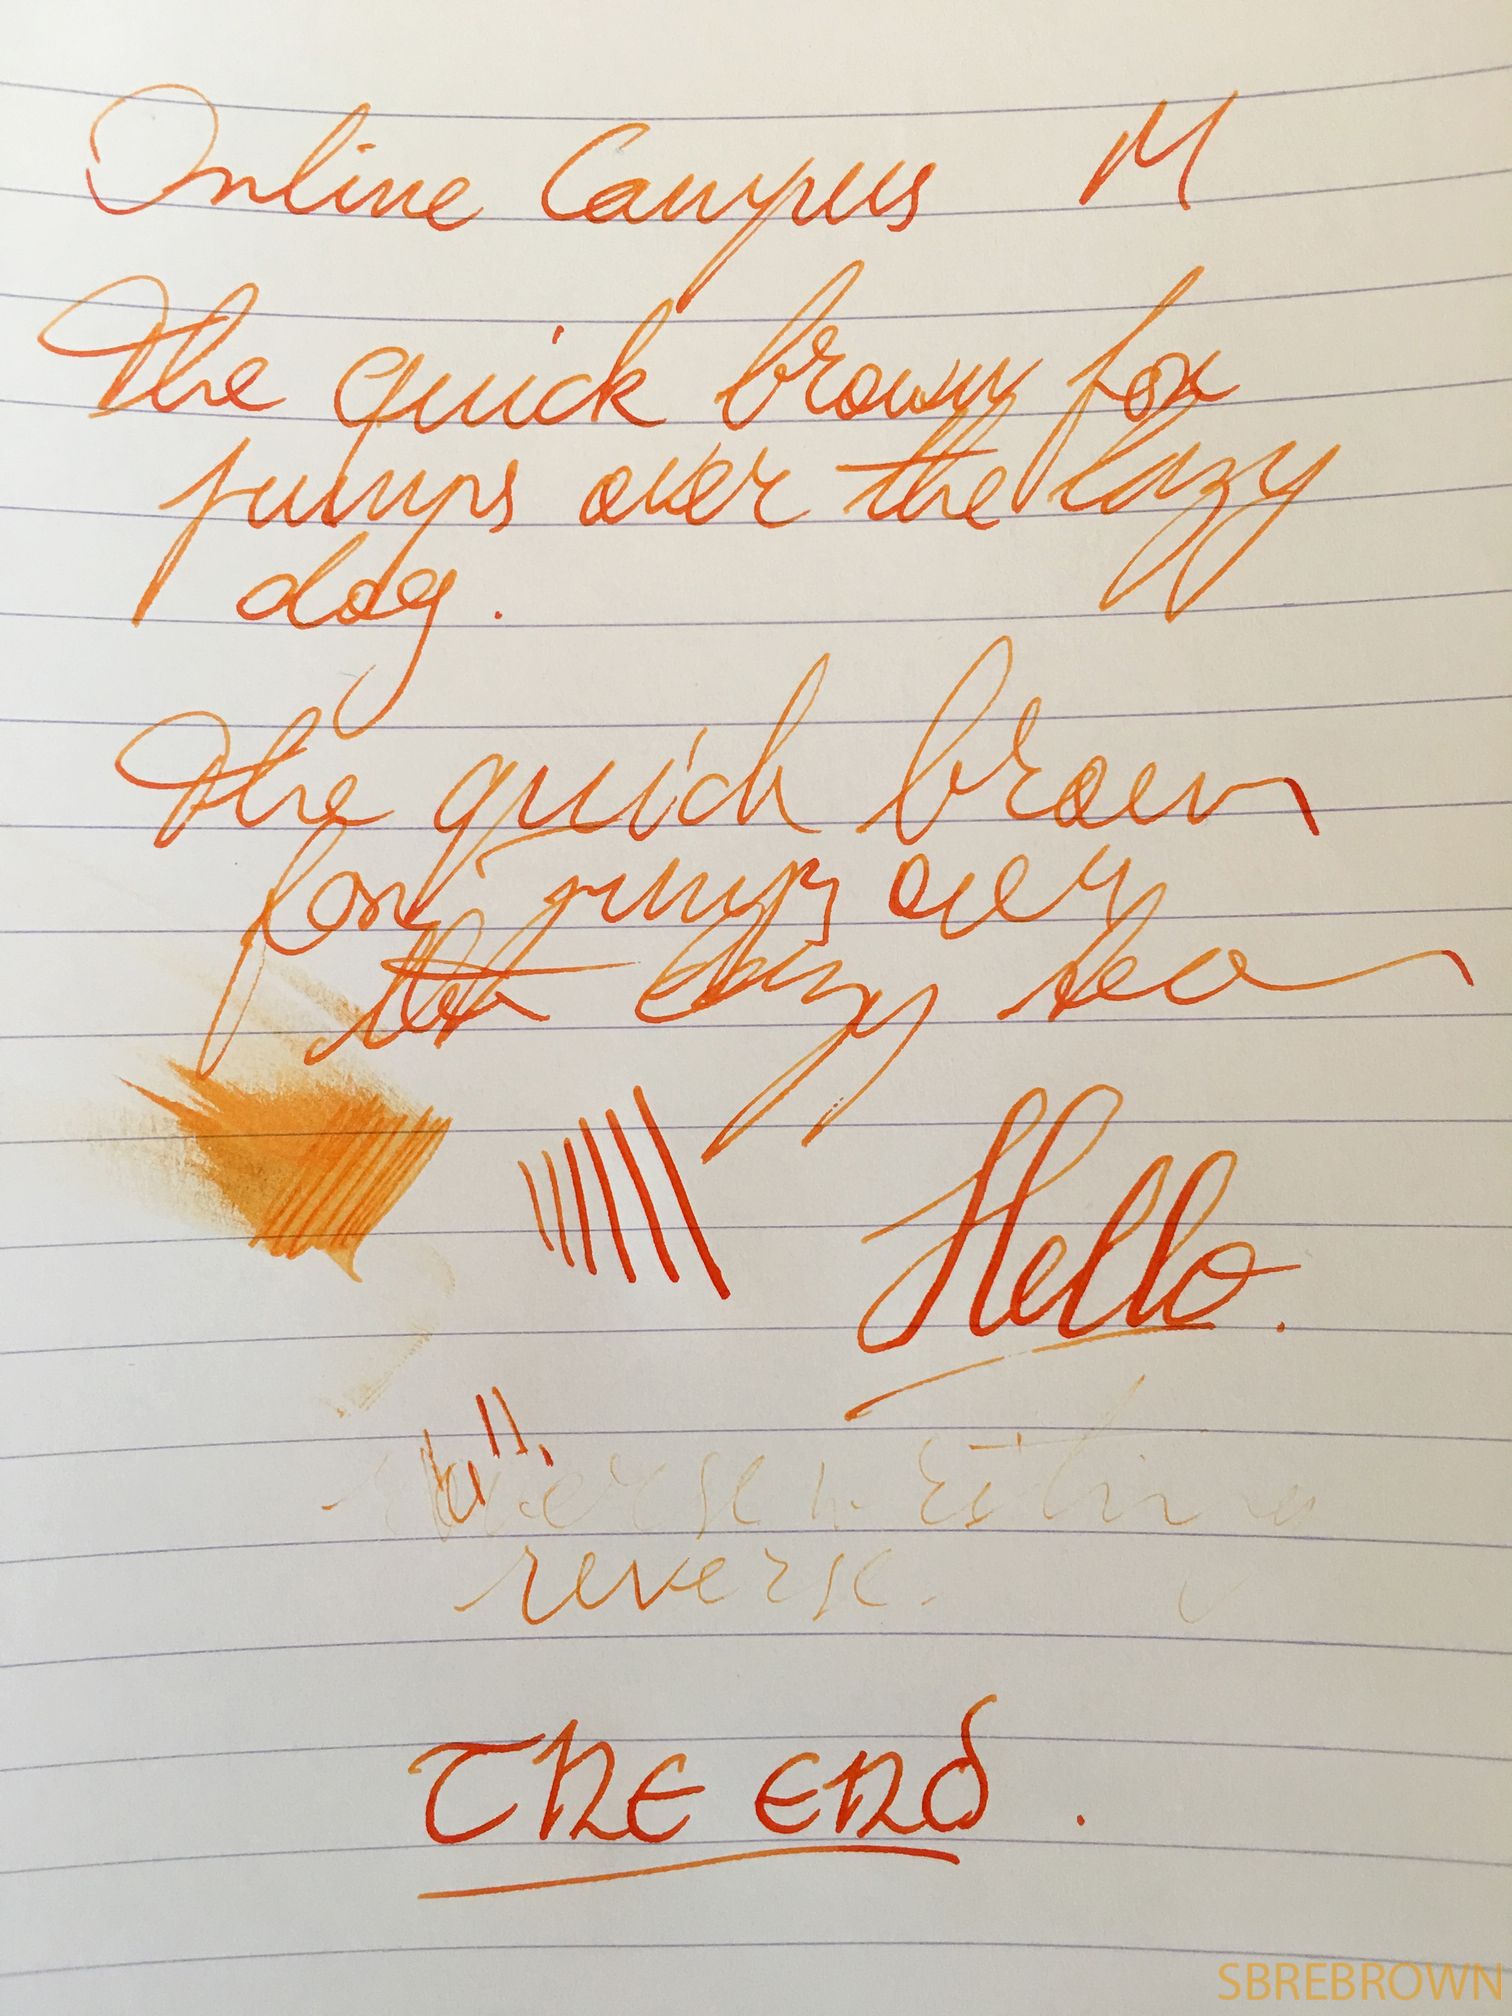 Online Campus M
The quick brown fox
jumps over the lazy
dog.
The quick brown
fox jumps over
the lazy
Hello.
reverse writing
reverse.
The end.
SBREBROWN